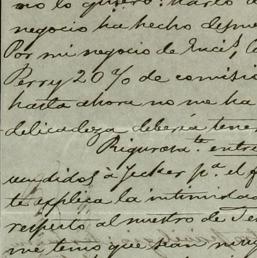 no lo quiero. Harto d
negocio ha hecho despue
Por mi negocio de
Perry 20% de comisio
hasta ahora no me ha
delicadeza debería tener
Rigurosa.te entre
vendidos à Jecker p.a el f
te esplica la intimidad
respecto al nuestro de Te
me temo que sean muy